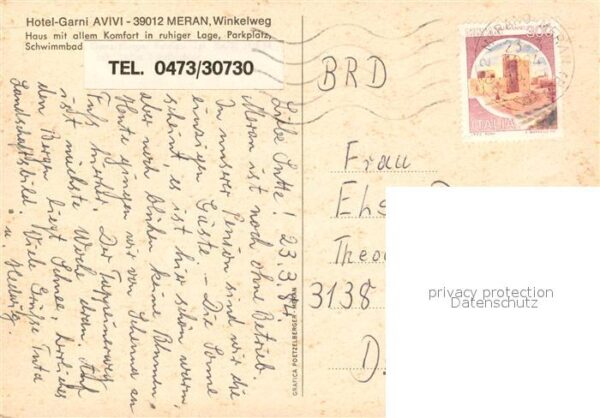 Hotel-Garni AVIVI - 39012 MERAN, Winkelweg
Haus mit allem Komfort in ruhiger Lage, Parkplatz,
Schwimmbad
TEL. 0473/30730
Liebe 23.3.87
Meran ist noch ohne Betrieb.
In unserer Pension sind wir die
einzigen Gäste – Die Sonne
scheint, es ist hier schön warm,
aber noch blühen keine Blumen.
Heute gingen wir von Schenna zu
Fuß hierher. Der Tappeinerweg
ist nächste Woche dran. Auf
den Bergen liegt Schnee, herrliches
Landschaftsbild. Viele Grüße
u. Hedwig
GRAFICA POETZELBERGER - MERAN
BRD
Frau
Theo
3138
D.
ITALIA
privacy protection
Datenschutz